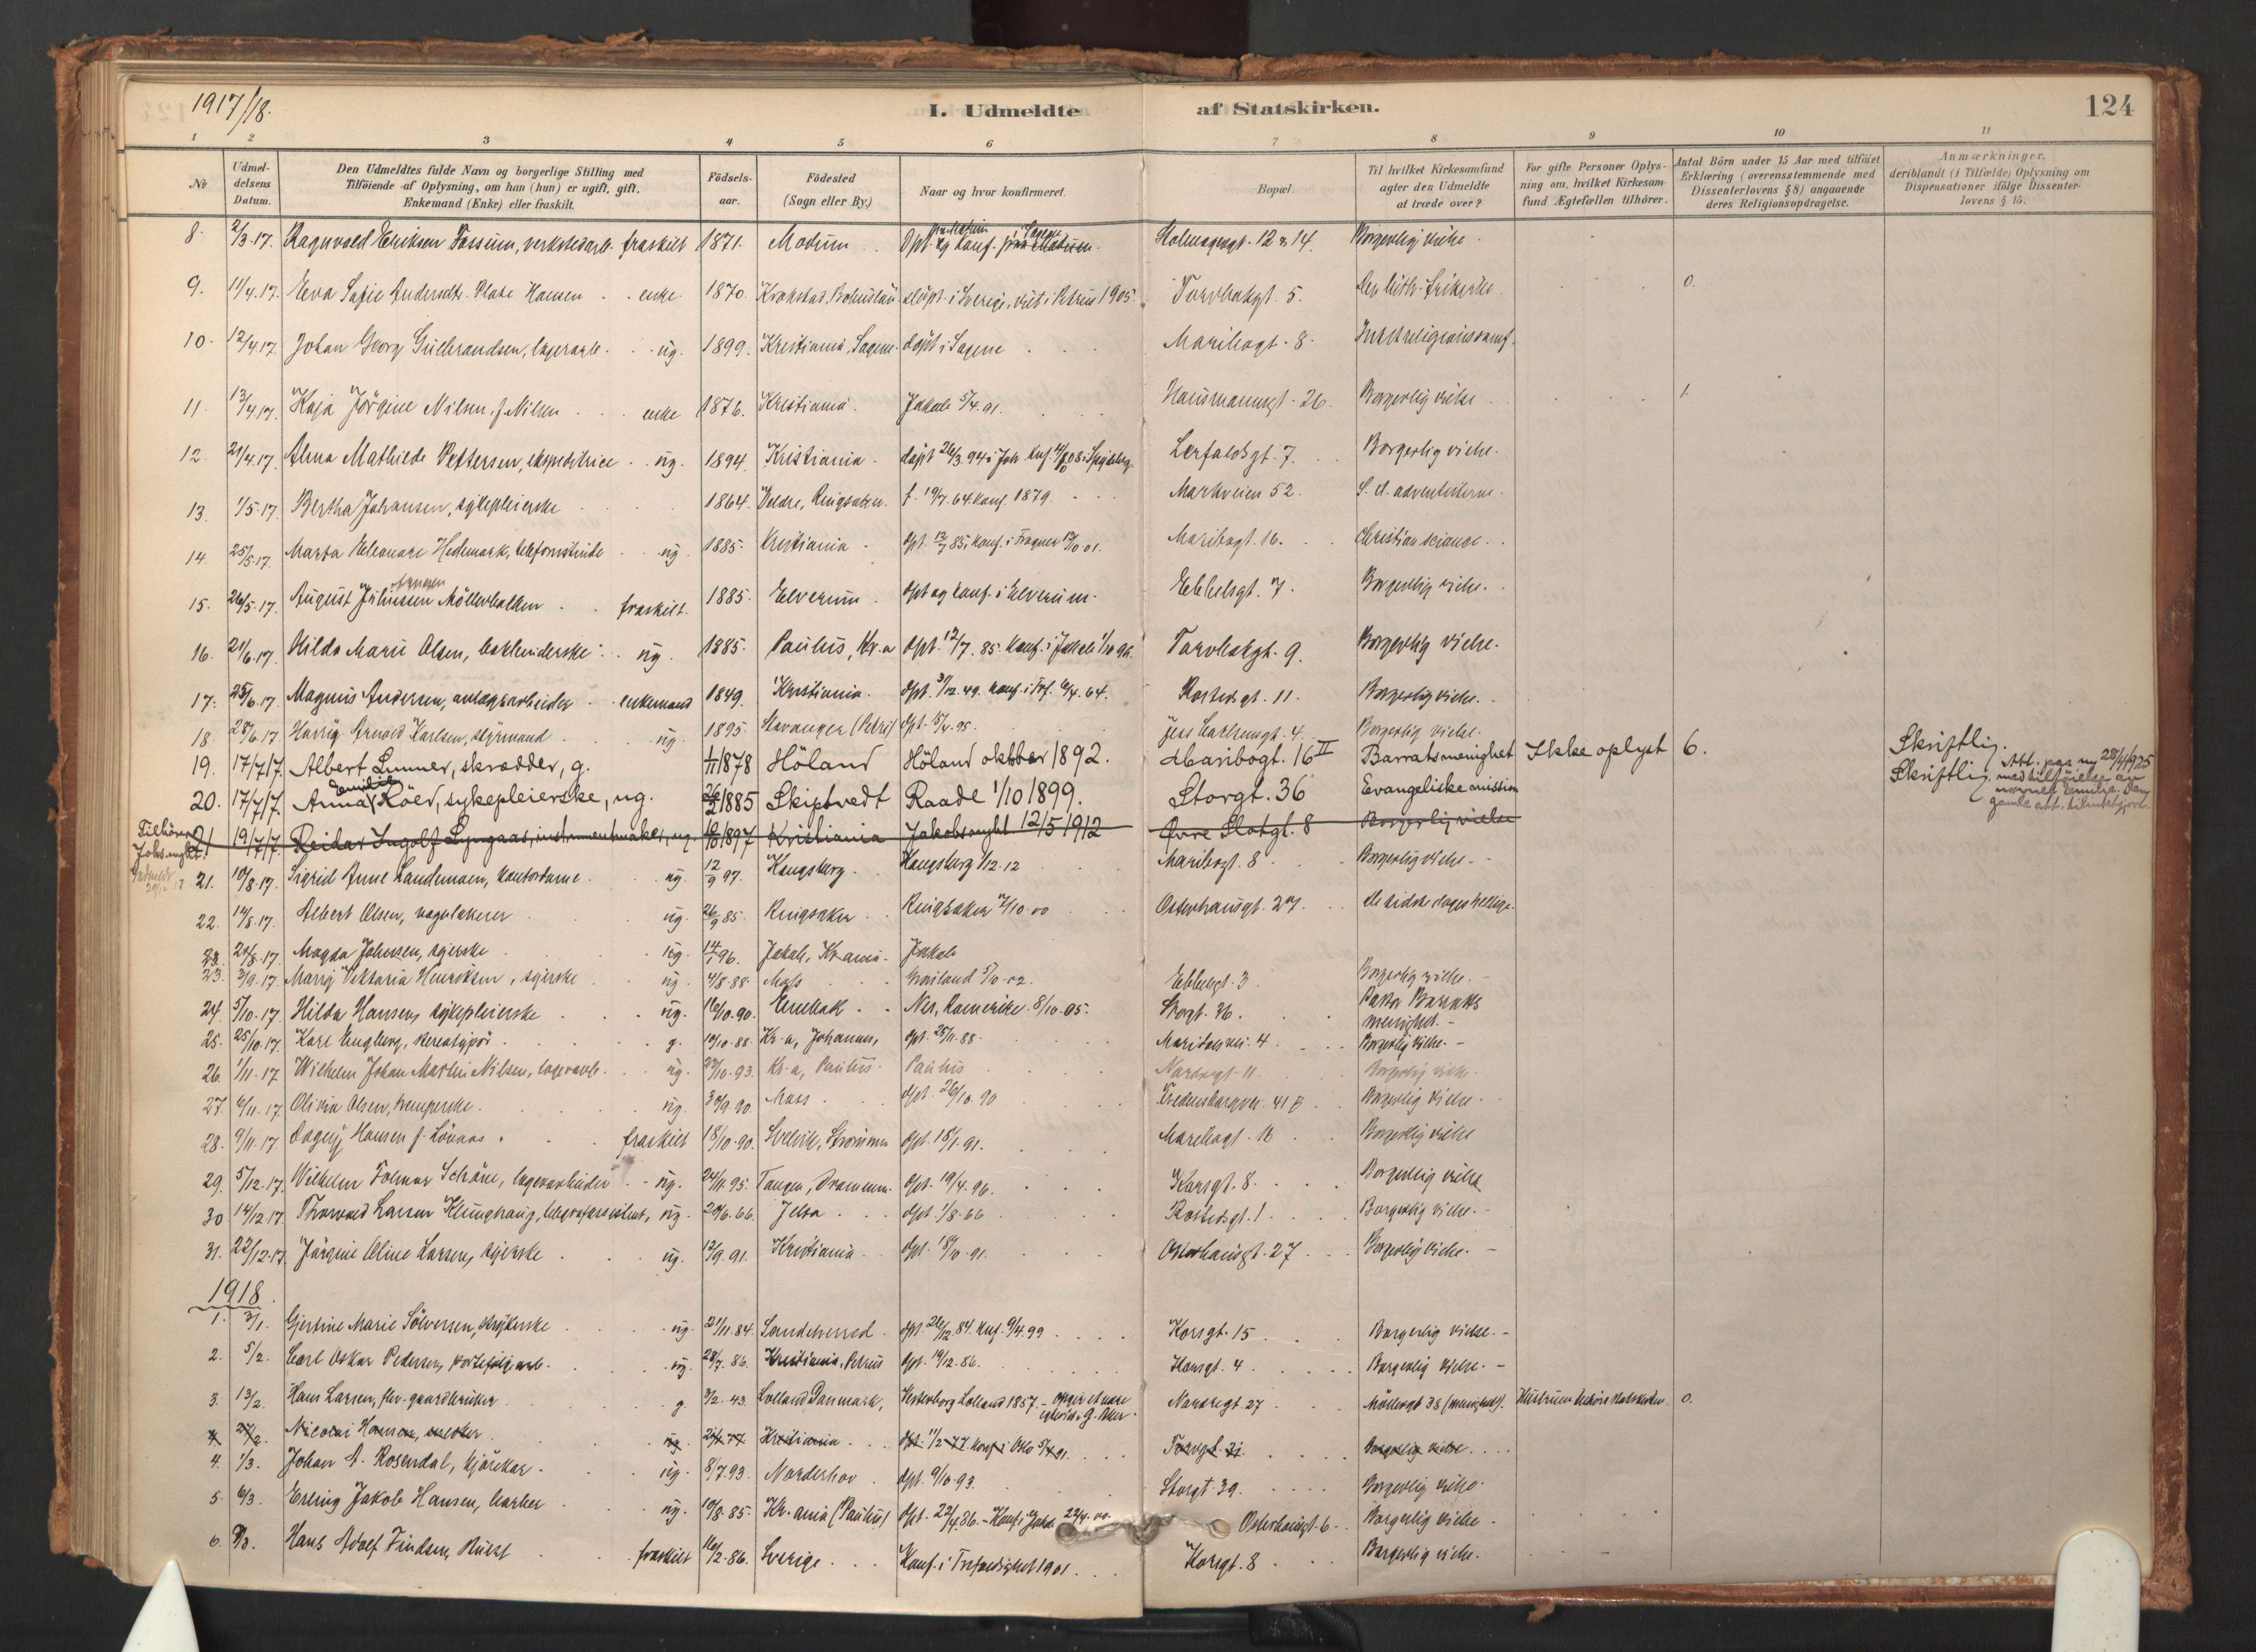 1917/18.
I. Udmeldte af Statskirken.
124
1 2 3 4 5 6 7 8 9 10 11
No
Udmeldelsens Datum.
Den Udmeldtes fulde Navn og borgerlige Stilling med Tilföiende af Oplysning, om han (hun) er ugift, gift, Enkemand (Enke) eller fraskilt.
Födselsaar.
Födested (Sogn eller By.)
Naar og hvor konfirmeret.
Bopæl.
Til hvilket Kirkesamfund agter den Udmeldte at træde over?
For gifte Personer Oplysning om, hvilket Kirkesamfund Ægtefællen tilhörer.
Antal Börn under 15 Aar med tilföiet Erklæring (overensstemmende med Dissenterlovens § 8) angaaende deres Religionsopdragelse.
Anmærkninger, deriblandt (i Tilfælde) Oplysning om Dispensationer ifölge Dissenterlovens § 15.
8. 2/3.17. Ragnvald Eriksen Fossum, verkstedarb. fraskilt 1871. Modum Holmagt. 12 14. Borgerlig vielse
9. 11/4.17. Eva Sofie enke 1870. Torvbakgt. 5. 0.
10. 12/4.17. Johan Georg Gulbrandsen, lagerarb. ug. 1899. Kristiania, Sagene. döpt i Sagene Maribogt. 8.
11. 13/4.17. Kaja Jörgine Nilsen, f. Nilsen enke 1876. Kristiania. Jakob 5/4.91. Hausmannsgt. 26. Borgerlig vielse 1.
12. 21/4.17. Anna Mathilde Pettersen, ekspeditrice ug. 1894. Kristiania. Borgerlig vielse.
13. 1/5.17. Bertha Johansen, sykepleierske 1864. Ringsaker. Konf. 1879. Markveien 52. S. d. adventisterne.
14. 25/5.17. Marta Eleonore Hedemark, ug. 1885. Kristiania Maribogt. 16. Christian science.
15. 26/5.17. August Juliussen Möllerbakken fraskilt. 1885. Elverum. döpt og konf. i Elverum. Ebbelsgt. 7. Borgerlig vielse.
16. 21/6.17. Hilda Marie Olsen, ug. 1885. Paulus, Kr.a döpt. 12/7.85. konf. i Jakob Torvbakgt. 9. Borgerlig vielse.
17. 25/6.17 Magnus Andersen, anlægsarbeider enkemand 1849. Kristiania. Rostedsgt. 11. Borgerlig vielse.
18. 28/6.17. Harry Arnold Karlsen, styrmand ug. 1895 Stavanger (Petri) Borgerlig vielse.
19. 17/7/17. Albert Lunner, skrædder, g. 1/11 1878 Höland Höland oktober 1892. Maribogt. 16 II Barratsmenighet Ikke oplyst 6. Skriftlig.
20. 17/7/17. Anna Emilie Röed, sykepleierske, ug. 26/2 1885 Skiptvedt Raade 1/10 1899. Storgt. 36 Evangeliske mission Skriftlig. Att. paa ny 28/4 1925 med tilföielse av navnet Emilie. Den gamle att. tilintetgjort.
Tilhörer Johs.mght.
21. 19/7/17. Reidar Ingolf Lyngaas, instrumentmaker, ug. 1897 Kristiania Jakobsmght 12/5 1912 Övre Slotsgt. 8 Borgerlig vielse
21. 10/8.17. Sigrid Anne Landemoen, kontordame ug. 12/9 97. Kongsberg. Kongsberg 1/12.12 Maribogt. 8. Borgerlig vielse.
22. 14/8.17. Albert Olsen, vognlakerer ug. 26/9 85. Ringsaker Ringsaker Osterhausgt. 27. de sidste dages hellige.
23. 24/8.17. Magda Johnsen, syerske ug. 14/1 96. Jakob, Kr.ania. Jakob
23. 3/9.17. Marry Viktoria Henriksen, syerske ug. 4/8.88. Moss Ebbelsgt. 3. Borgerlig vielse.
24. 5/10.17. Hilda Hansen, sykepleierske ug. 16/10.90. Enebak Nes, Romerike. 8/10.05. Storgt. 36. Pastor Barratts menighet.
25. 25/10.17. Karl Engberg, stereotypör g. 10/10.88. Kr.a, Johannes, döpt. 25/11.88. Maridalsvei. 4. Borgerlig vielse.
26. 1/11.17 Wilhelm Johan Martin Nilsen, lagerarb. ug. Kr.a, Paulus Paulus Nordregt. 11. Borgerlig vielse.
27. 6/11.17. Olivia Olsen, ug. 30/9.90. Moss döpt. 26/10.90 Fredensborgvei. 41 Borgerlig vielse.
28. 9/11.17 Dagny Hansen f. Lövaas fraskilt 18/10.90. Svelvik, Strömmen döpt. 18/1.91. Maribogt. 16 Borgerlig vielse
29. 5/12.17. Wilhelm Folmer Schöne, lagerarbeider ug. 24/11.95. Tangen, Drammen. döpt. 19/4.96. Korsgt. 8. Borgerlig vielse
30 14/12.17. Thorvald Larsen Klinghaug, telegrafassistent, ug. 20/6.66. Jelsa döpt. 1/8.66 Rostedsgt. 1. Borgerlig vielse.
31. 22/12.17. Jörgine Oline Larsen, syerske ug. 12/9.91. Kristiania Osterhausgt. 27 Borgerlig vielse.
1918.
1. 3/1. Gjertine Marie Sölversen, strykerske ug. 21/11.84. Sandeherred. döpt. 26/12.84. konf. 9/4.99 Korsgt. 15 Borgerlig vielse.
2. 5/2. Carl Oskar Pedersen, ug. 28/7.86. Kristiania, Petrus döpt. 19/12.86. Korsgt. 4 Borgerlig vielse.
3. 13/2. Hans Larsen, fhv. gaardbruker g. 3/2.43. Lolland Danmark, Vesterborg Lolland 1857. Nordregt 27 Möllergt 38 (menighet). Hustruen tilhörer statskirken. 0.
4 27/2. Nicolai Hansen, ug. Kristiania Torvgt. 31. Borgerlig vielse.
4. 1/3. Johan A. Rosendal, kjörekar ug. 8/7.93. Norderhov döpt. 9/10.93. Storgt 39. Borgerlig vielse.
5. 6/3. Erling Jakob Hansen, barber ug. 10/8.85. Kr.ania (Paulus) döpt. 22/4.86. Konf. i Jakob 22/4.00. Osterhausgt. 6. Borgerlig vielse.
6. 9/3. Hans Adolf Findsen, fraskilt 16/2.86. Sverige Konf. i Trefoldighet 1901. Korsgt. 8 Borgerlig vielse.